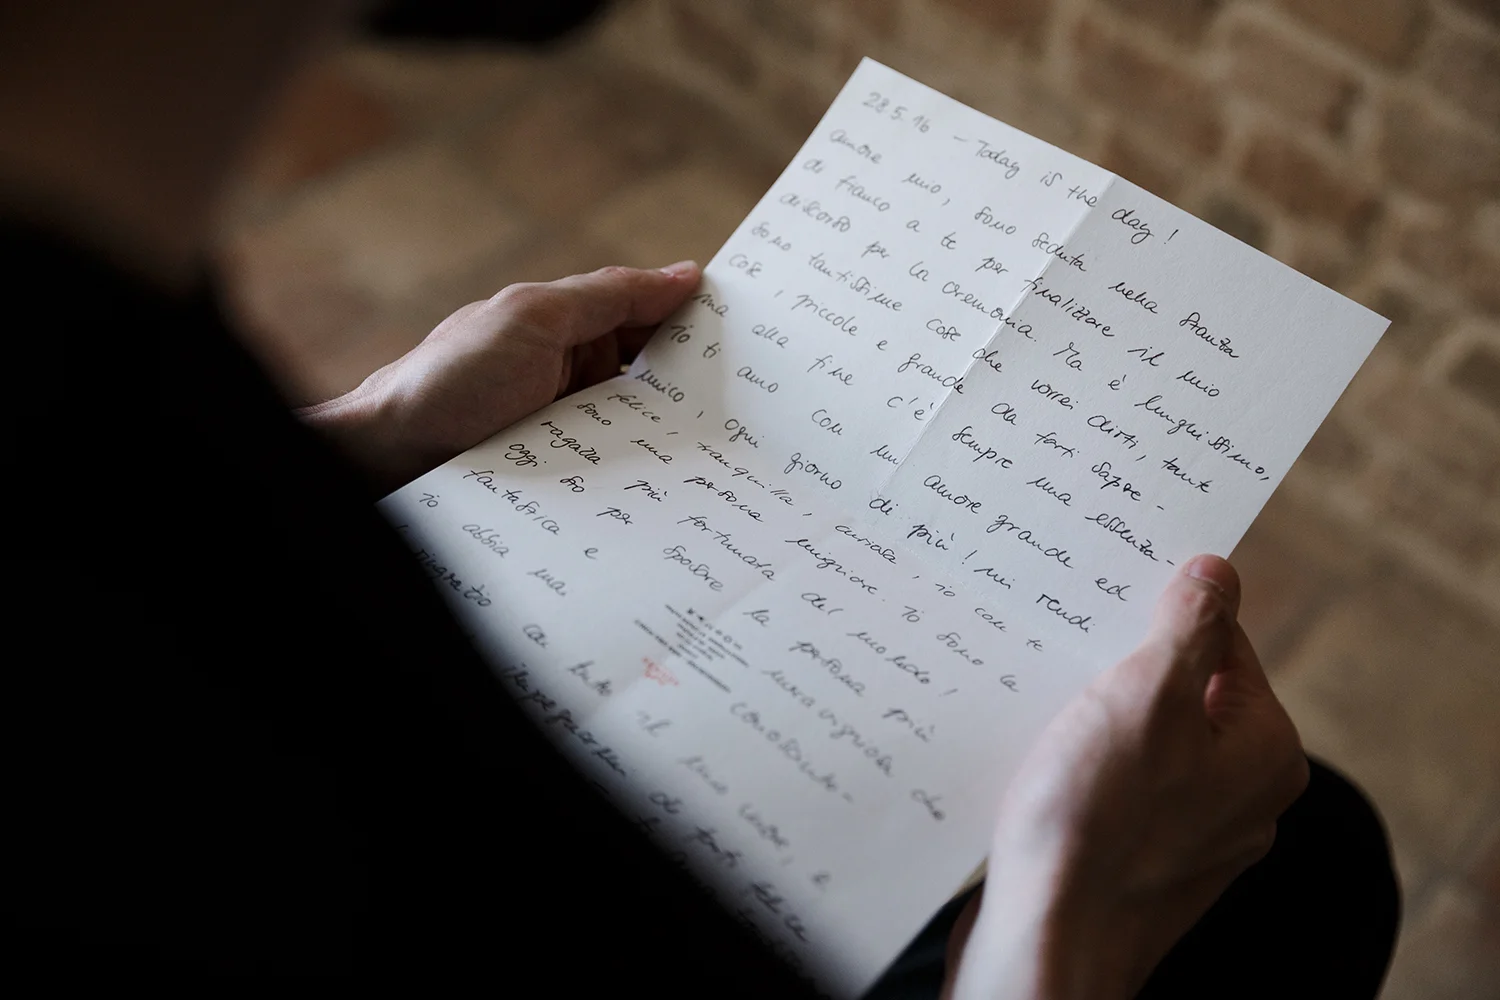 28.5.16 - Today is the day!
amore mio, sono seduta nella stanza
di fianco a te per finalizzare il mio
discorso per la ceremonia. Ma è lunghissimo,
sono tantissime cose che vorrei dirti, tante
cose, piccole e grande da farti sapere-
ma alla fine c'è sempre una essenza-
Io ti amo con un amore grande ed
unico, ogni giorno di più! mi rendi
felice, tranquilla, curiosa, io con te
sono una persona migliore. Io sono la
ragazza più fortunata del mondo!
Oggi sto per sposare la persona più
fantastica e meravigliosa che
io abbia mai
ringrazio di tutto il mio cuore, e
impegnarmi di farti felice